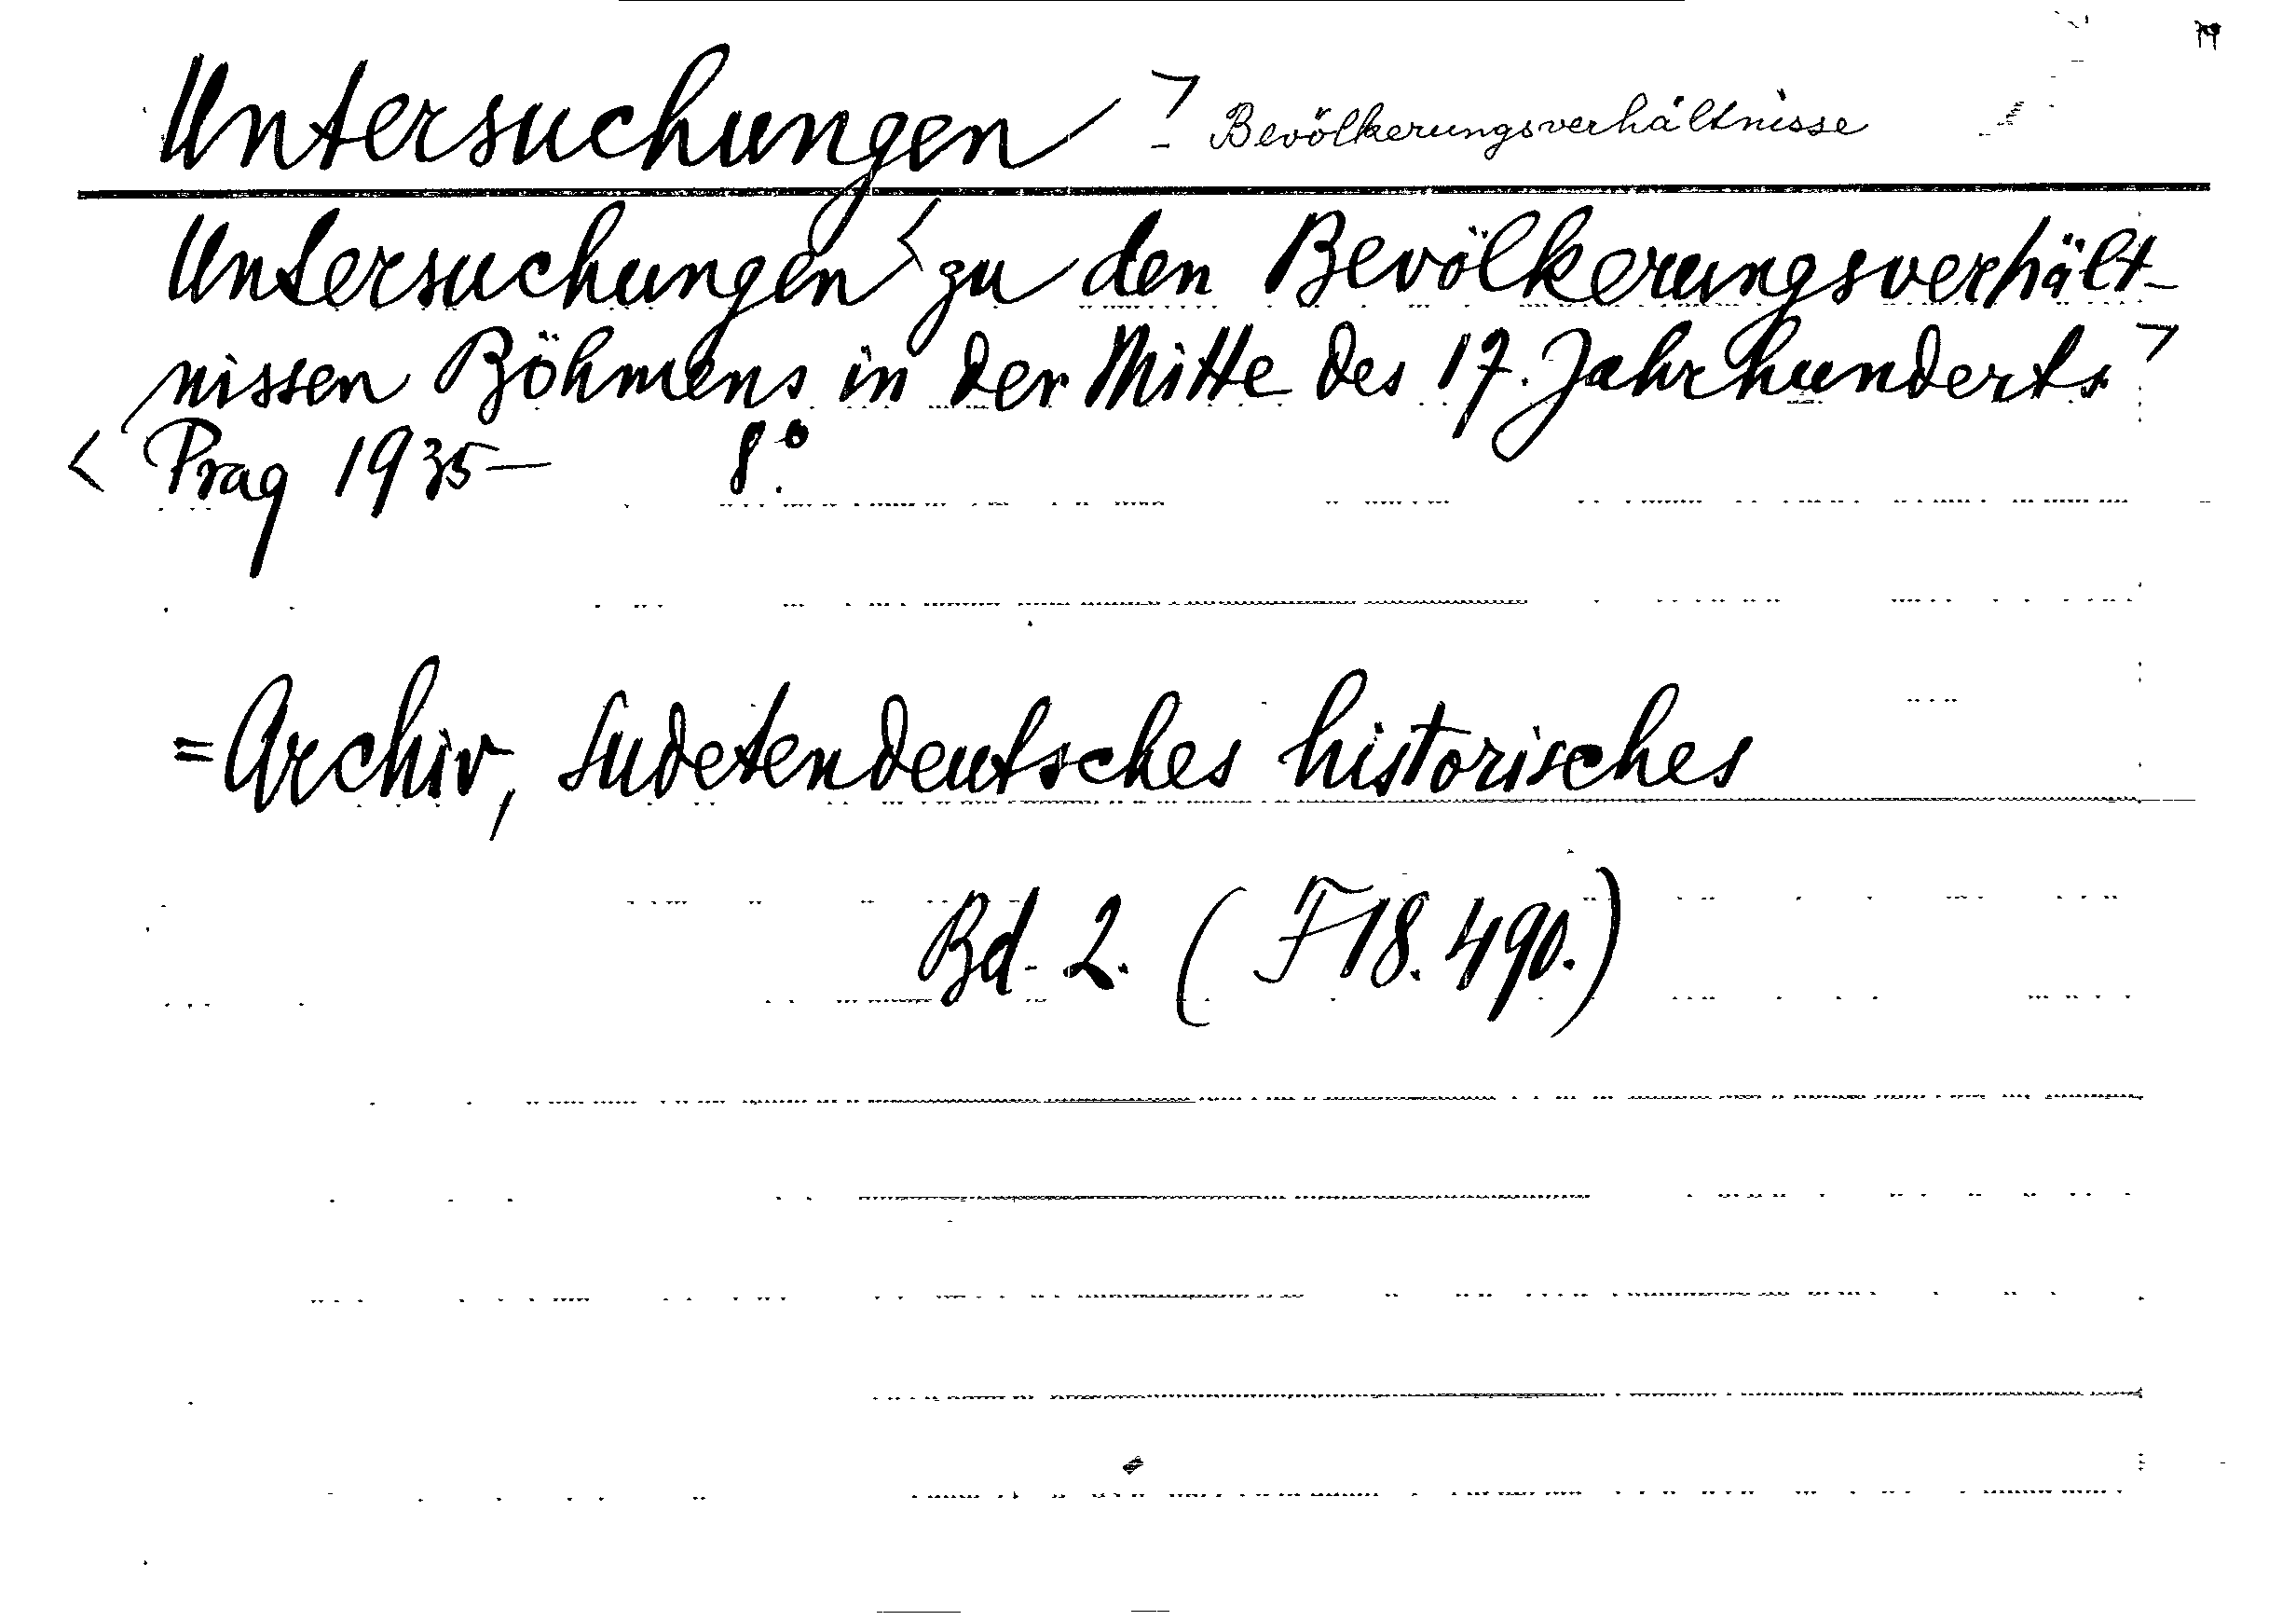 Untersuchungen > Bevölkerungsverhältnisse
Untersuchungen < zu den Bevölkerungsverhält-
nissen Böhmens in der Mitte des 17. Jahrhunderts >
< Prag 1935– 8°.
= Archiv, Sudetendeutsches historisches
Bd. 2. (F 18.490.)